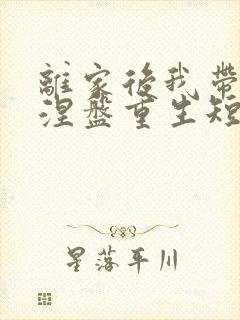 離家後我帶
涅盤重生短
星落平川